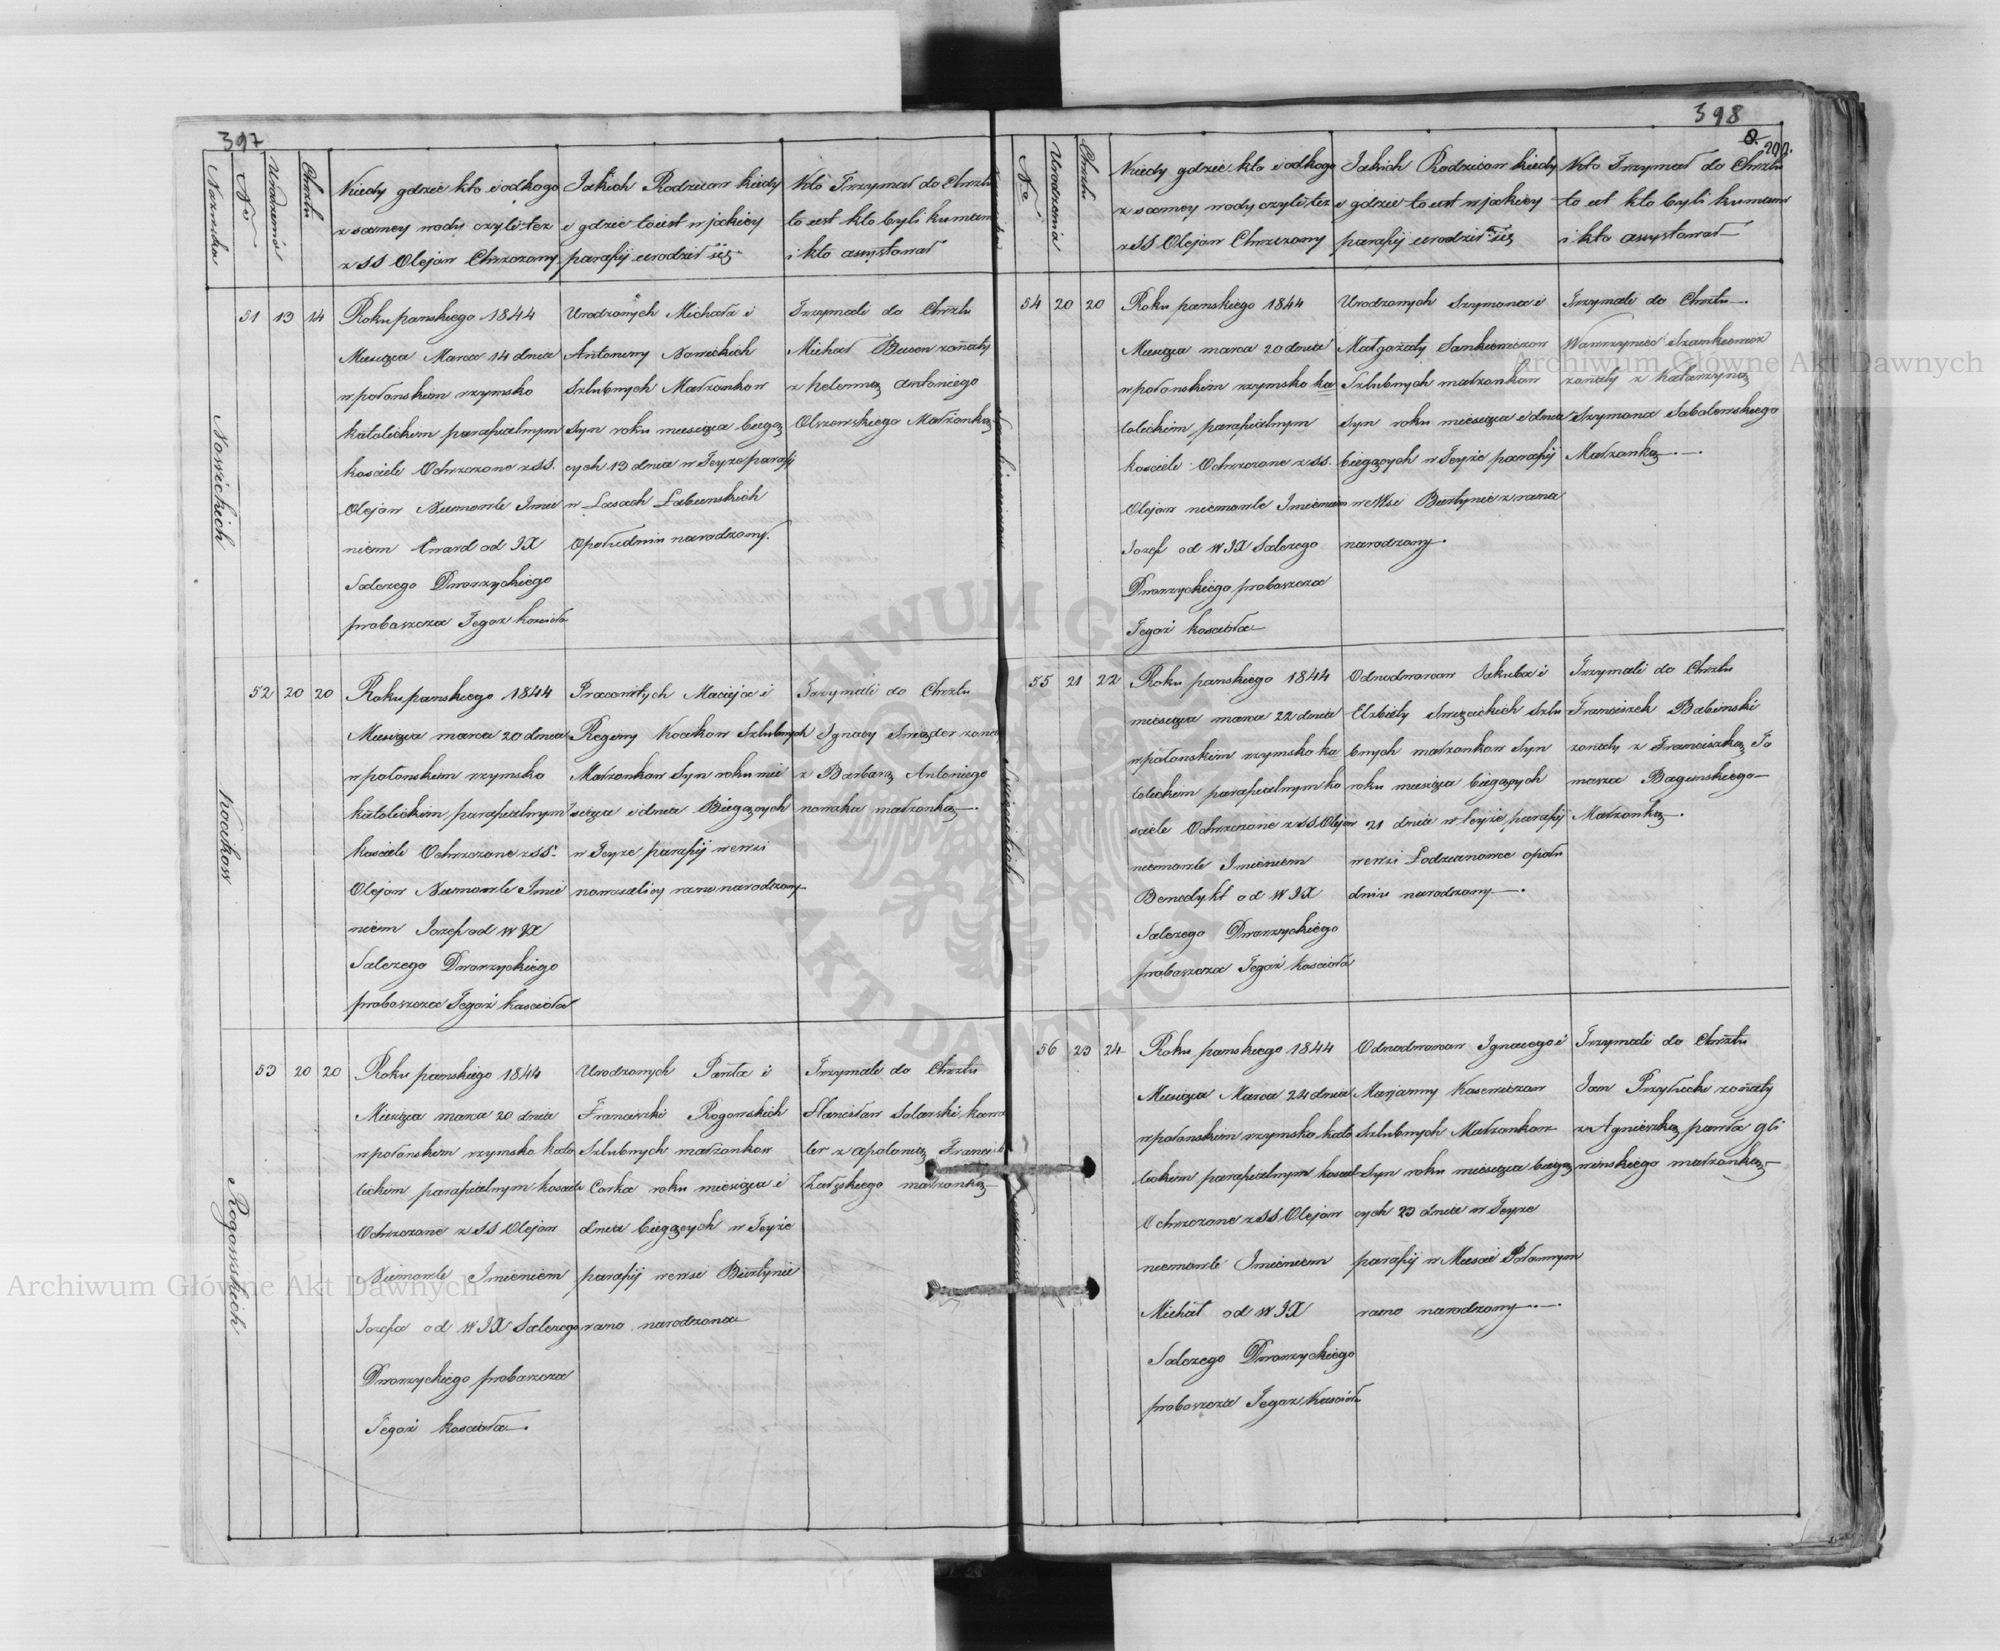 397
Nazwiska
No
Urodzenia
Chrztu
Kiedy gdzie kto i odkogo
z samey wody czyli tez
z SS Olejow Chrzczony
Jakich Rodzicow kiedy
i gdzie to iest w jakiey
parafij urodził się
Kto Trzymał do Chrztu
to iest kto byli kumami
i kto assystował
Nowickich
51 13 14
Roku panskiego 1844
Miesiąca Marca 14 dnia
w połonskim rzymsko
katolickim parafialnym
kosciele Ochrzczone z SS.
Olejow Niemowle Imie
niem Edward od JX
Salezego Dworzyckiego
probaszcza Tegoz kosciola
Urodzonych Michała i
Antoniny Nowickich
Szlubnych Małzonkow
Syn roku miesiąca bieżą
cych 13 dnia w Teyze parafij
w Lasach Labunskich
Opołudniu narodzony.
Trzymali do Chrztu
Michał żonaty
z helenną Antoniego
Olszewskiego Małżonką
Kocikow
52 20 20
Roku panskiego 1844
Miesiąca marca 20 dnia
w połonskim rzymsko
katolickim parafialnym
kosciele Ochrzczone z SS.
Olejow Niemowle Imie
niem Jozef od W JX
Salezego Dworzyckiego
probaszcza Tegoż kosciola
Pracowitych Macieja i
Regeny Kocikow Szlubnych
Małzonkow Syn roku mie
siąca i dnia Bieżących
w Teyze parafij we wsi
nowosielicy rano narodzony
Trzymali do Chrztu
Ignacy żonaty
z Barbarą Antoniego
nowaka małzonką.
Rogowskich
53 20 20
Roku panskiego 1844
Miesiąca marca 20 dnia
w połonskim rzymsko kato
lickim parafialnym kosciele
Ochrzczone z SS Olejow
Niemowle Imieniem
Jozefa od W JX Salezego
Dworzyckiego probaszcza
Tegoż kosciola.
Urodzonych Pawła i
Franciszki Rogowskich
Szlubnych małzonkow
Corka roku miesiąca i
dnia bieżących w Teyże
parafij we wsi Burtynie
rano narodzona
Trzymali do Chrztu
Stanisław Solarski kawa
ler z apolonią Francisz
Załęskiego małzonką
398
200.
No
Urodzenia
Chrztu
Kiedy gdzie kto i odkogo
z samey wody czyli tez
z SS Olejow Chrzczony
Jakich Rodzicow kiedy
i gdzie to iest w jakiey
parafij urodził się
Kto Trzymał do Chrztu
to iest kto byli kumami
i kto assystował
54 20 20
Roku panskiego 1844
Miesiąca marca 20 dnia
w połonskim rzymsko ka
tolickim parafialnym
kosciele Ochrzczone z SS.
Olejow niemowle Imieniem
Jozef od W JX Salezego
Dworzyckiego probaszcza
Tegoż kosciola
Urodzonych Szymona i
Małgożaty Sankiewiczow
Szlubnych małzonkow
Syn roku miesiąca i dnia
bieżących w Teyże parafij
we Wsi Burtynie z rana
narodzony.
Trzymali do Chrztu.
Wawrzyniec Szankiewicz
żonaty z katarzyną
Szymona Sobolewskiego
Małzonką.
55 21 22
Roku panskiego 1844
miesiąca marca 22 dnia
w połonskim rzymsko ka
tolickim parafialnym ko
sciele Ochrzczone z SS Olejow
niemowle Imieniem
Benedykt od W JX
Salezego Dworzyckiego
probaszcza Tegoż kosciola
Odnodworcow Jakuba i
Elzbiety Szlu
bnych małzonkow Syn
roku miesiąca bieżących
21 dnia w teyże parafij
we wsi Lodzianowce opołu
dniu narodzony.
Trzymali do Chrztu
Franciszek Babinski
żonaty z Franciszką To
masza Baginskiego
Małżonką.
56 23 24
Roku panskiego 1844
Miesiąca Marca 24 dnia
w połonskim rzymsko kato
lickim parafialnym kosciel
Ochrzczone z SS Olejow
niemowle Imieniem
Michał od W JX
Salezego Dworzyckiego
probaszcza Tegoz Kosciola
Odnodworcow Ignacego i
Marjanny
Szlubnych Małzonkow
Syn roku miesiąca bieżą
cych 23 dnia w Teyze
parafij w Miescie Połonnym
rano narodzony.
Trzymali do Chrztu
Jan żonaty
z Agnieszką pawła Gli
winskiego małzonką
Archiwum Główne Akt Dawnych
Archiwum Główne Akt Dawnych
ARCHIWUM GŁÓWNE AKT DAWNYCH